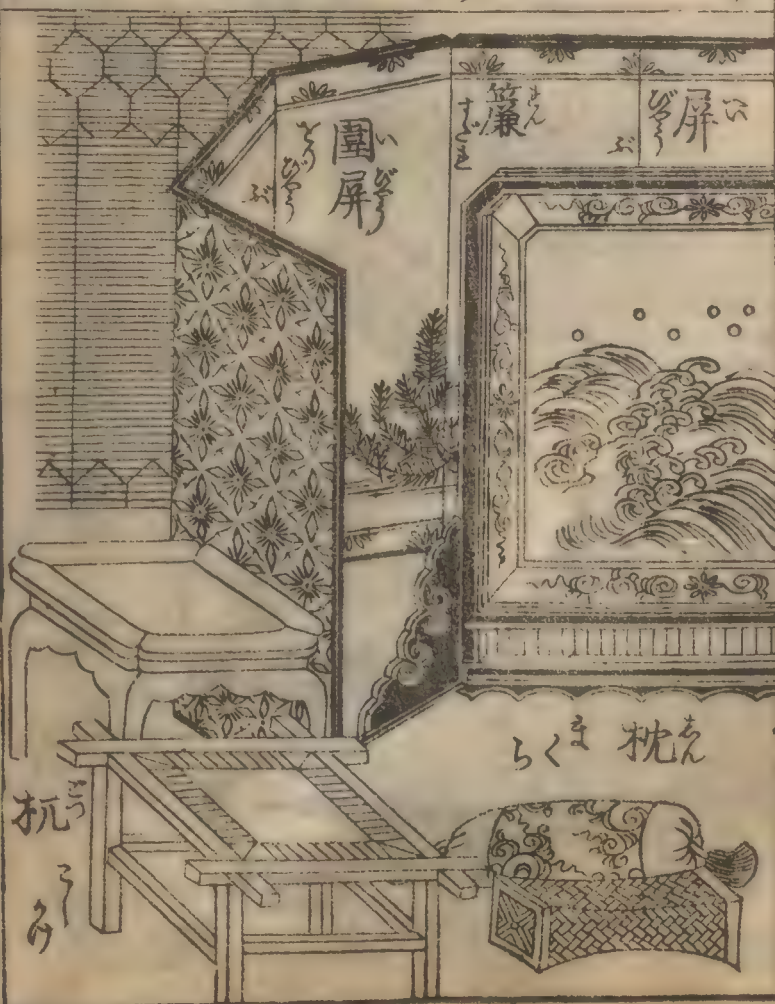 屏 い
びやうぶ
簾 れん
すだれ
圍屏 いびやう
びやうぶ
枕 しん
まくら
杌 ごつ
こしかけ